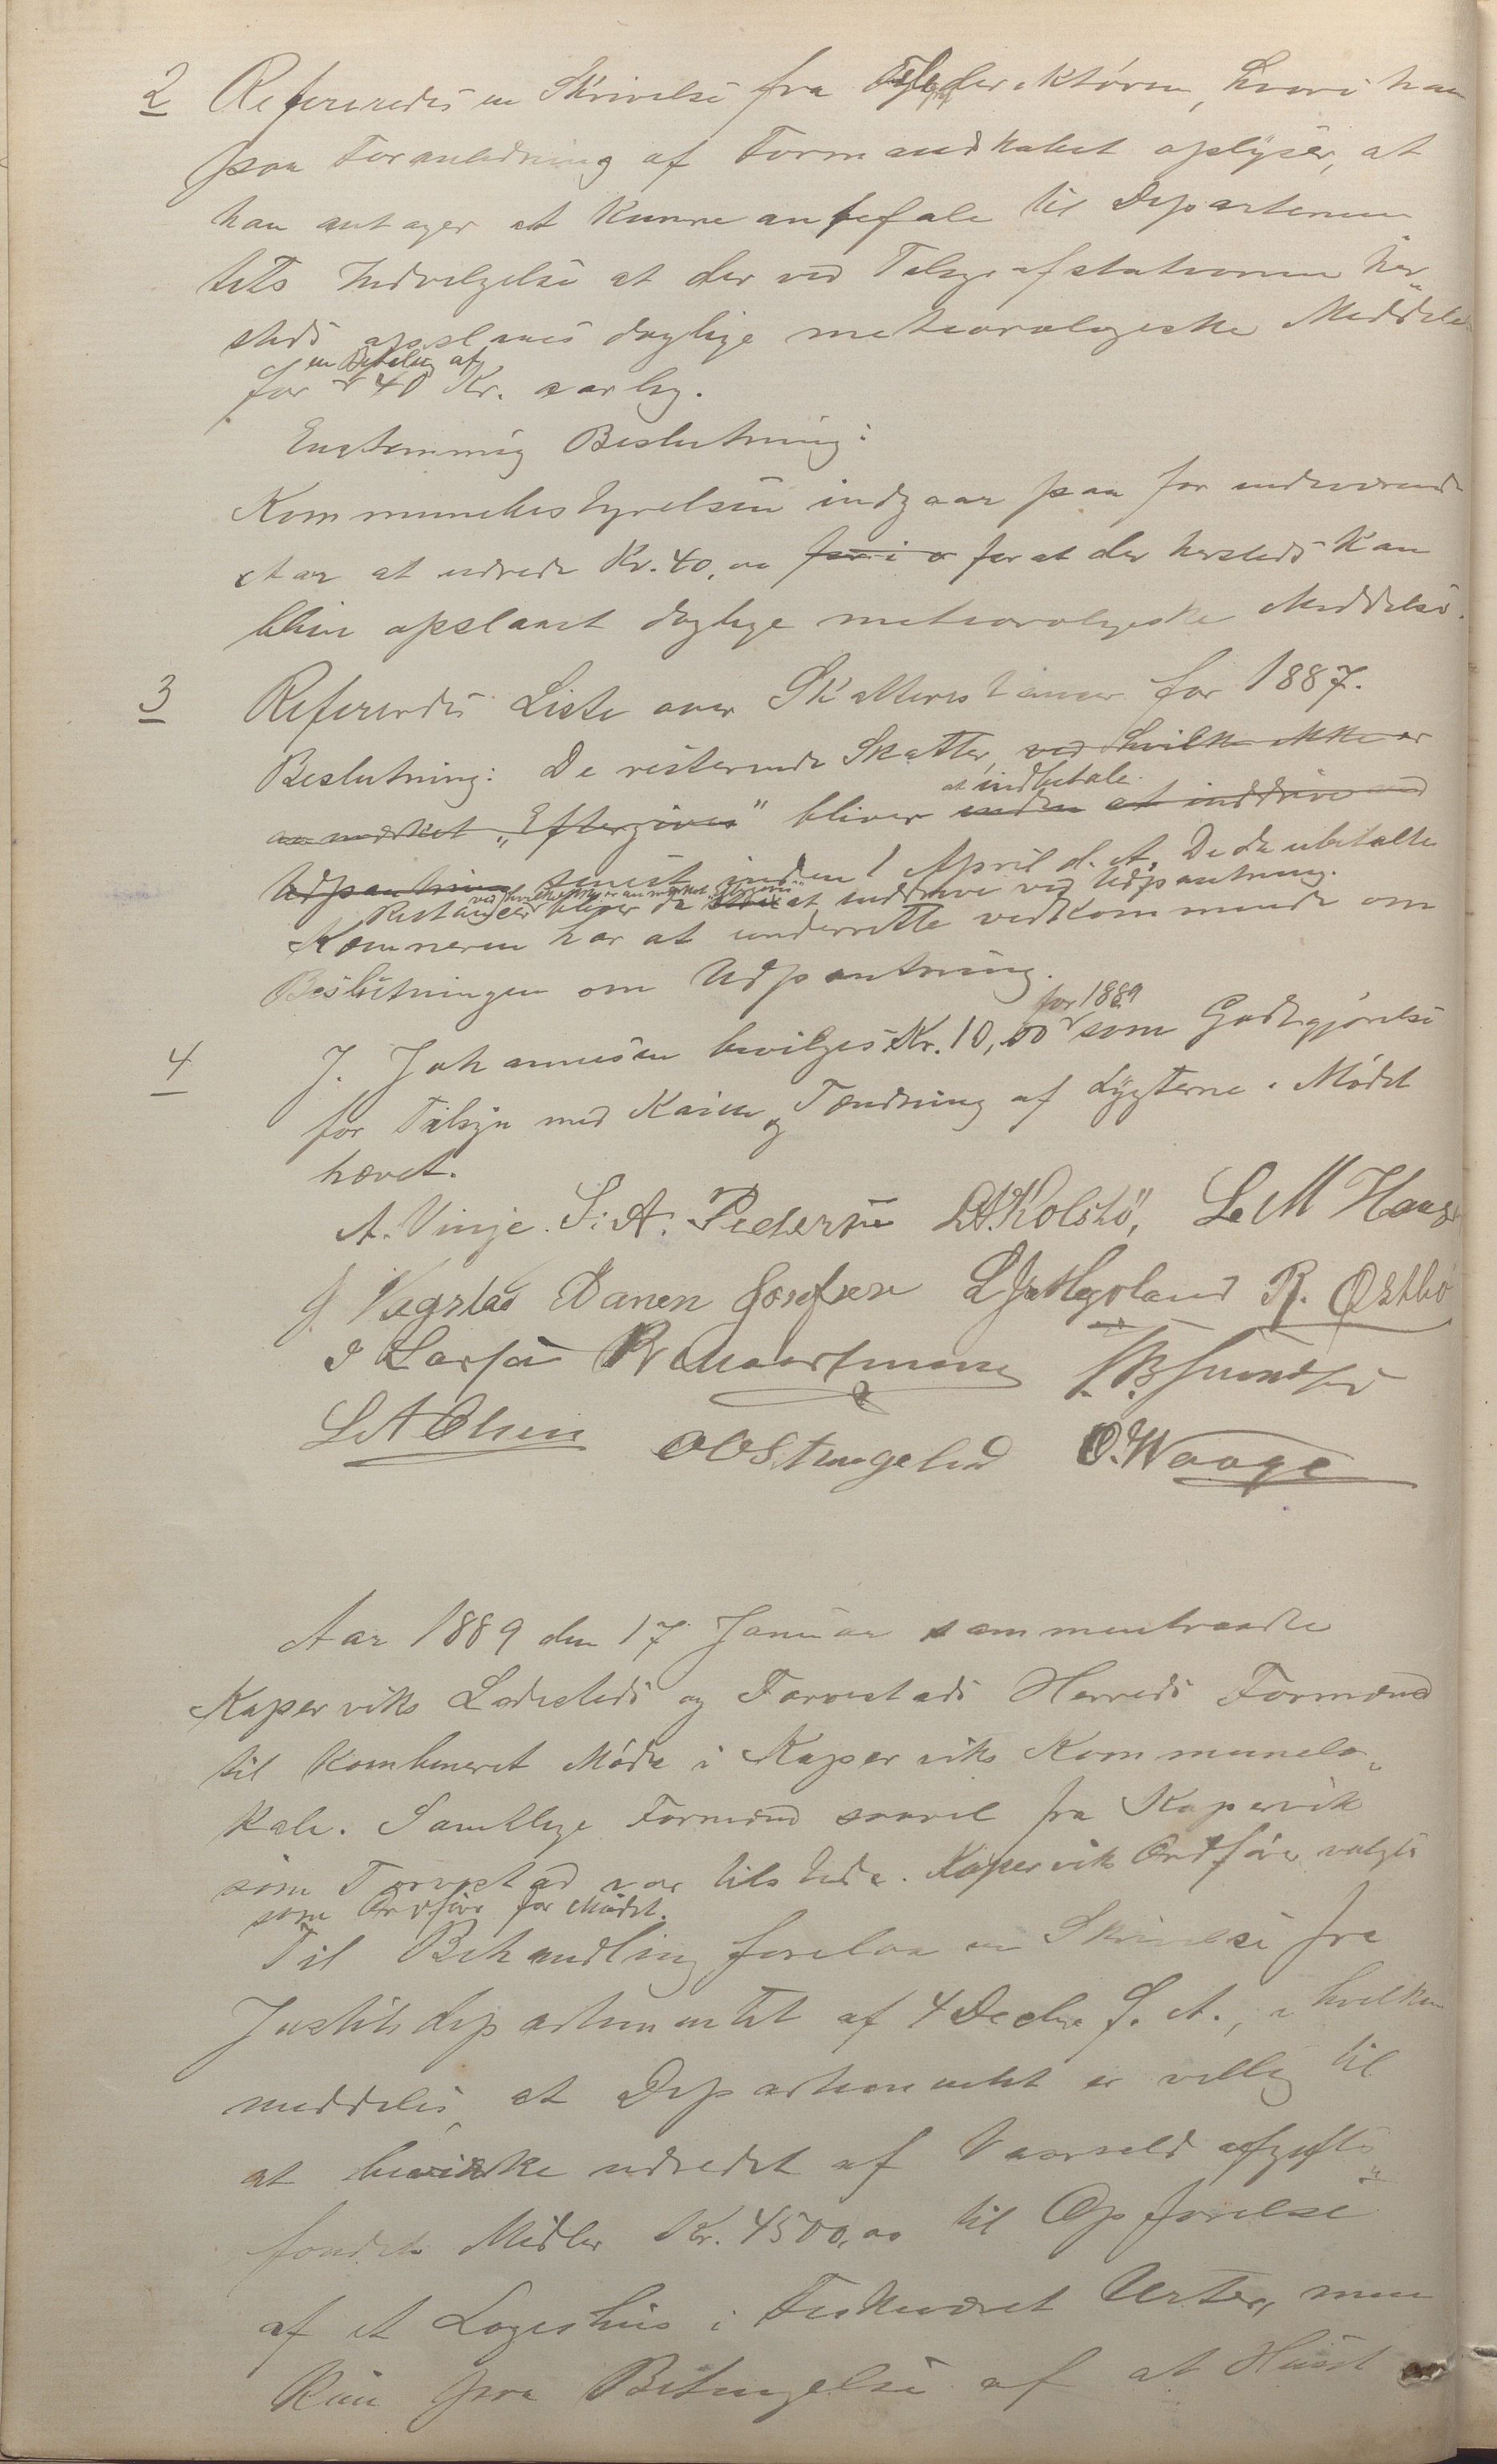 2 Refereredes en Skrivelse fra Telegrafdirektøren, hvori han
paa Foranledning af Formandskabet oplyser, at
han antager at kunne anbefale til Departemen
tets Indvilgelse at der ved Telegrafstationen her-
steds opslaaes daglige meteorologiske Meddelelser
for en Betaling af 40 Kr. aarlig.
Enstemmig Beslutning:
Kommunebestyrelsen indgaar paa for indeværende
Aar at udrede Kr. 40,00 for i o for at der hersteds kan
blive opslaaet daglige meteorologiske Meddelelser.
3 Refereredes Liste over Skatterestancer for 1887.
Beslutning: De resterende Skatter, ved hvilke ikke er
anmærket "Eftergives" bliver inden at inddrive ved at indbetale
Udpantning senest inden 1 April d. A. De da ubetalte
Restancer ved hvilke ikke er anmærket "Eftergives" bliver da at inddrive ved Udpantning.
Kæmneren har at underrette vedkommende om
Beslutningen om Udpantning.
4 J. Johannesen bevilges Kr. 10,00 for 1889 som Godtgjørelse
for Tilsyn med Kaien og Tændning af Lygterne. Mødet
hævet.
A. Vinje. S. A. Pedersen L.A. Kolstø, L. M Haage
J. Vegstad Danen Josefsen L J Helgoland R. Østbø
I Larsen R Maartmann J. B. Svendsen
L A Olsen O O Stangeland O. Waage
Aar 1889 den 17 Januar sammentraadte
Kopervika Ladesteds og Torvestads Herreds Formænd
til kombineret Møde i Koperviks Kommunelo-
kale. Samtlige Formænd saavel fra Kopervik
som Torvestad var tilstede. Kopervik Ordfører valgtes
som Ordfører for Mødet.
Til Behandling forelaa en Skrivelse fra
Justitsdepartementet af 4 Decbr f. A., i hvilken
meddeles, at Departementet er villig til
at bevirke udredet af Vaarsildafgifts-
fondets Midler Kr. 4500,00 til Opførelse
af et Logishus i Fiskeværet Urter, men
kun paa Betingelse af at Huset